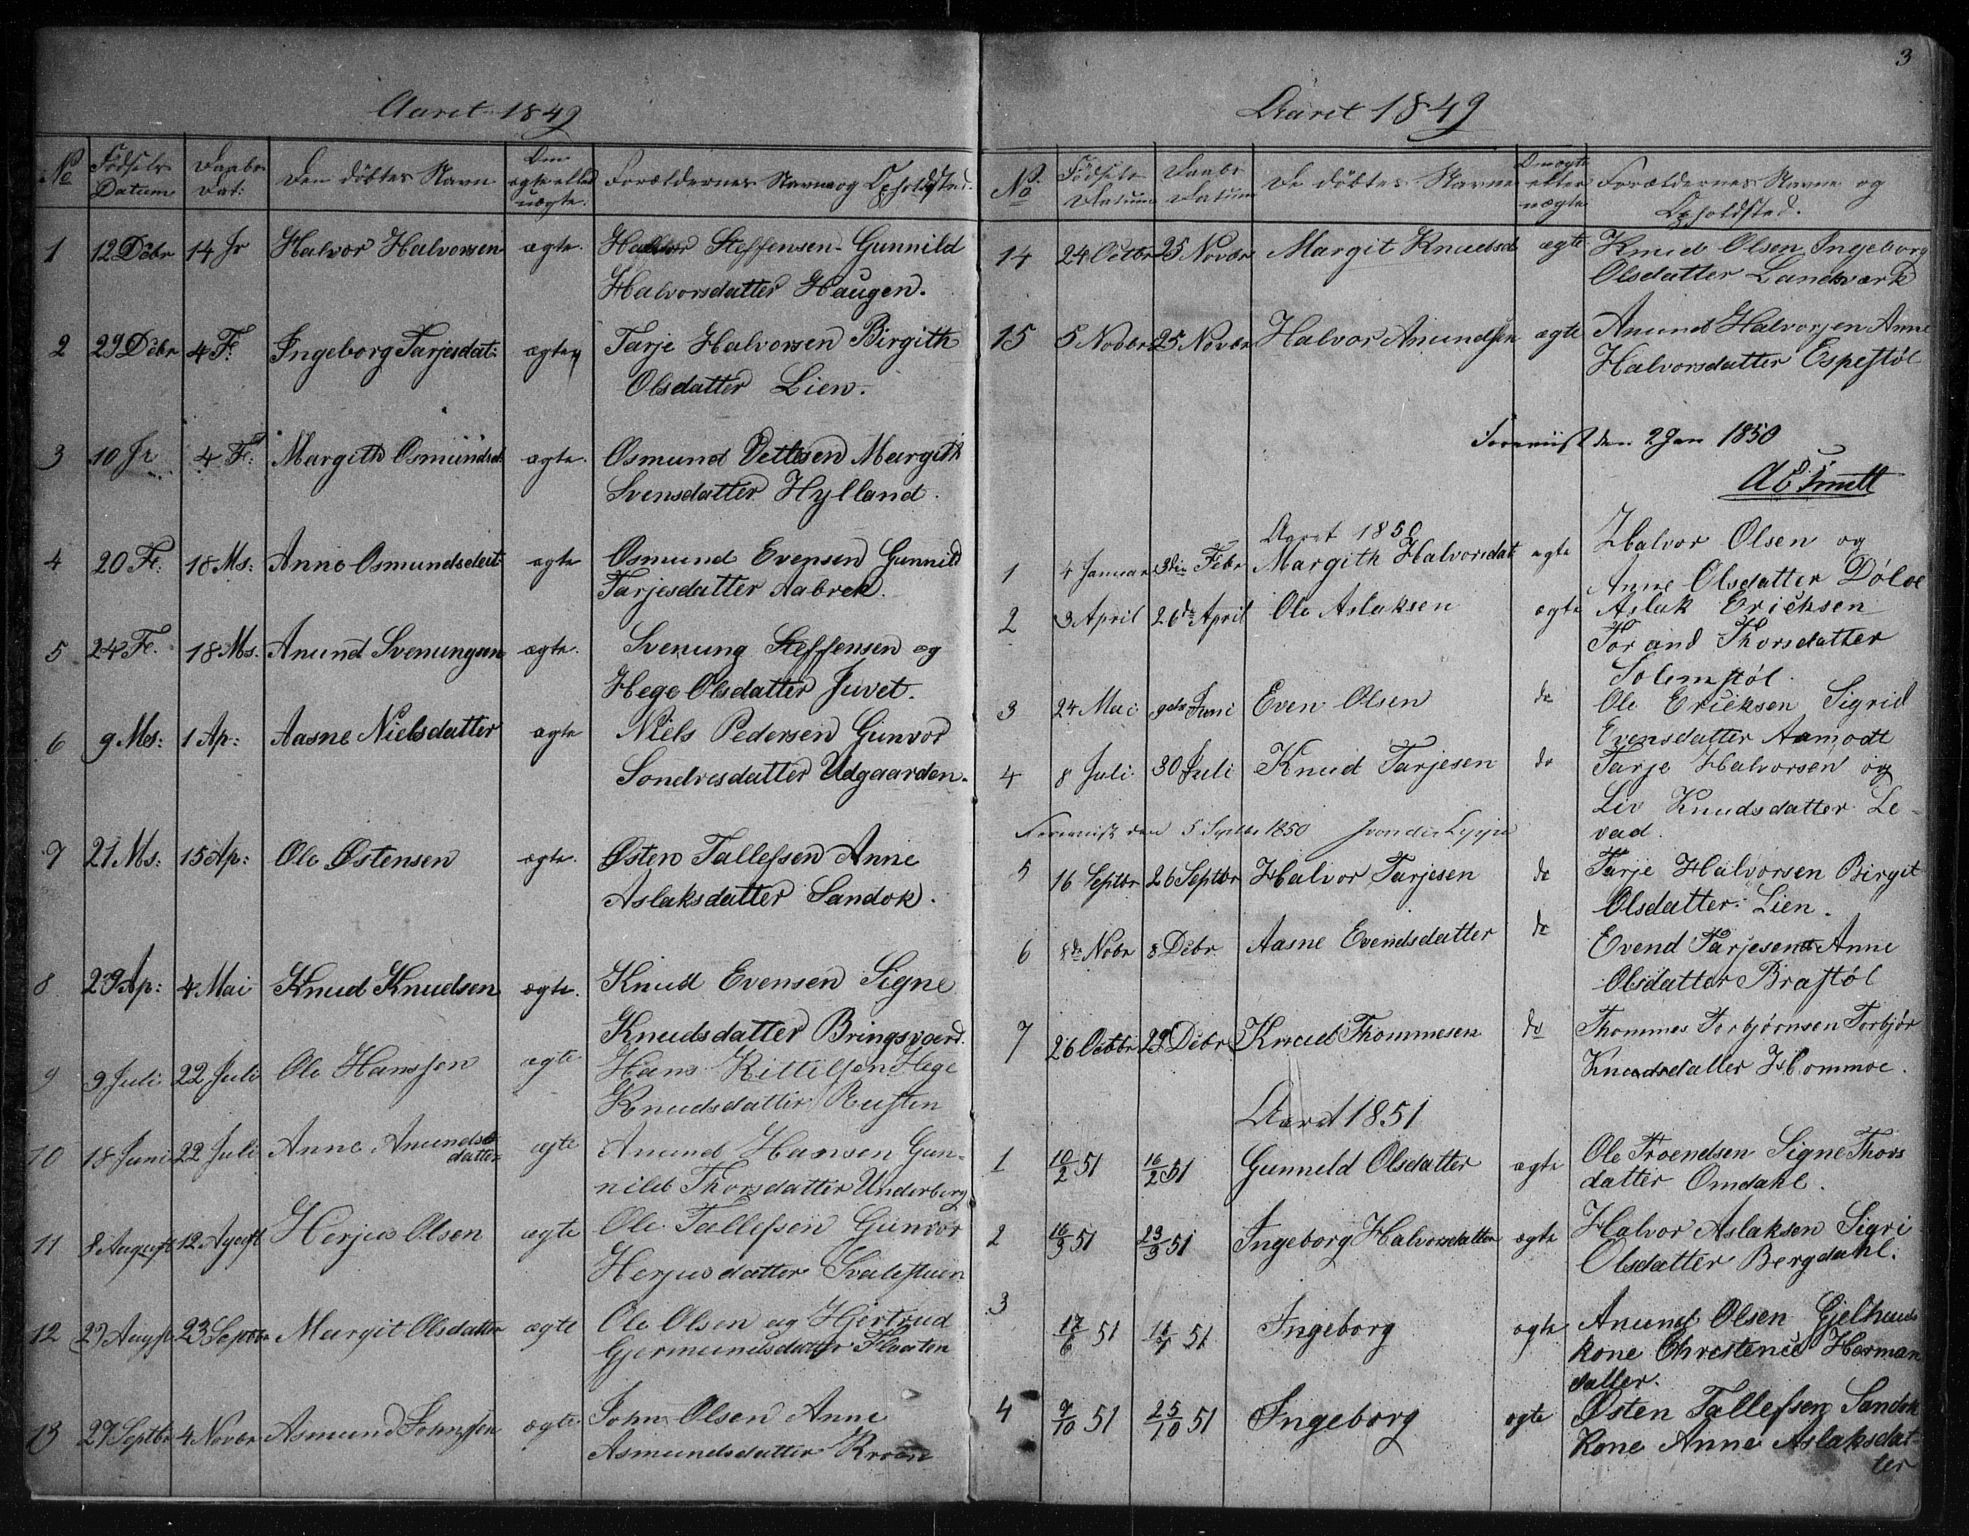 Aaret 1849
No Fødsels Datum Daabs Dat: Den døbtes Navn Om ægte eller uægte. Forældrenes Navne og Opholdsted.
1 12 Dcbr 14 Jr Halvor Halvorsen ægte. Halvor Steffensen Gunnild
Halvorsdatter Haugen.
2 29 Dcbr 4 F. Ingeborg Tarjesdat: ægte Tarje Halvorsen Birgith
Olsdatter Lien.
3 10 Jr 4 F: Margith Osmundsd. ægte. Osmund Vettesen Margith
Svensdatter Hylland.
4 20 F. 18 Ms: Anne Osmundsdat ægte Osmund Evensen Gunnild
Tarjesdatter Aabrek.
5 24 F. 18 Ms. Anund Svenungsen ægte. Svenung Steffensen og
Hege Olsdatter Juvet.
6 9 Ms: 1 Ap: Aasne Nielsdatter ægte Niels Pedersen Gunvor
Sondresdatter Udgaarden.
7 21 Ms: 15 Ap: Ole Østensen ægte. Østen Tallefsen Anne
Aslaksdatter Sandok.
8 29 Ap: 4 Mai Knud Knudsen ægte. Knud Evensen Signe
Knudsdatter Bringsverd.
9 9 Juli 22 Juli Ole Hanssen ægte Hans Kittilsen Hege
Knudsdatter Rusten
10 18 Juni 22 Juli Anne Anundsdatter ægte Anund Hansen Gun-
nild Thorsdatter Underberg
11 8 August 12 August Herjus Olsen ægte Ole Tallefsen Gunvor
Herjusdatter Svalestuen
12 27 Augst 23 Septbr Margit Olsdatter ægte Ole Olsen og Hjertrud
Gjermundsdatter Flaaten
13 27 Septbr 4 Novbr Asmund Johnssen ægte John Olsen Anne
Asmundsdatter Kroen
3
Aaret 1849
No. Fødsels Datum Daabs Datum De døbtes Navne Om ægte eller uægte Forældrenes Navne og
Opholdsted.
14 24 Octbr 25 Novbr Margit Knudsd ægte Knud Olsen Ingeborg
Olsdatter Landsværk
15 5 Nobbr 25 Novbr Halvor Anundsen ægte Anund Halvorsen Anne
Halvorsdatter Espestøl
Foreviist den 2 Jan 1850
A E Smitt
Aaret 1850
1 4 Januar 3die Febr Margith Halvorsdat ægte Halvor Olsen og
Anne Olsdatter Dølve
2 3 April 26de April Ole Aslaksen ægte Aslak Erichsen
Tor and Thorsdatter
Solemstøl.
3 24 Mai 9de Juni Even Olsen do Ole Ericksen Sigrid
Evensdatter Aamodt
4 8 Juli 30 Juli Knud Tarjesen do Tarje Halvorsen og
Liv Knudsdatter Le-
vad.
Foreviist den 5 Septbr 1850
5 16 Septbr 26 Septbr Halvor Tarjesen do Tarje Halvorsen Birgit
Olsdatter Lien.
6 8de Nobr 8 Decbr Aasne Evendsdatter do Evend Tarjesen Anne
Olsdatter Brastøl
7 26 Octbr 29 Decbr Knud Thommesen do Thommes Torbjørnsen Torbjør
Knudsdatter Hommoe.
Aaret 1851
1 10/2 51 16/2 51 Gunneld Olsdatter ægte Ole Troendsen Signe Thors
datter Omdahl.
2 16/3 51 23/3 51 Ingeborg Halvorsdatter ægte Halvor Aslaksen Sigri
Olsdatter Bergdahl.
3 17/6 51 51 Ingeborg ægte Anund Olsen Gjelhuus
kone Christence Herman
datter.
4 9/10 51 25/10 51 Ingeborg ægte Østen Tallefsen Sandok
Kone Anne Aslaksdat-
ter